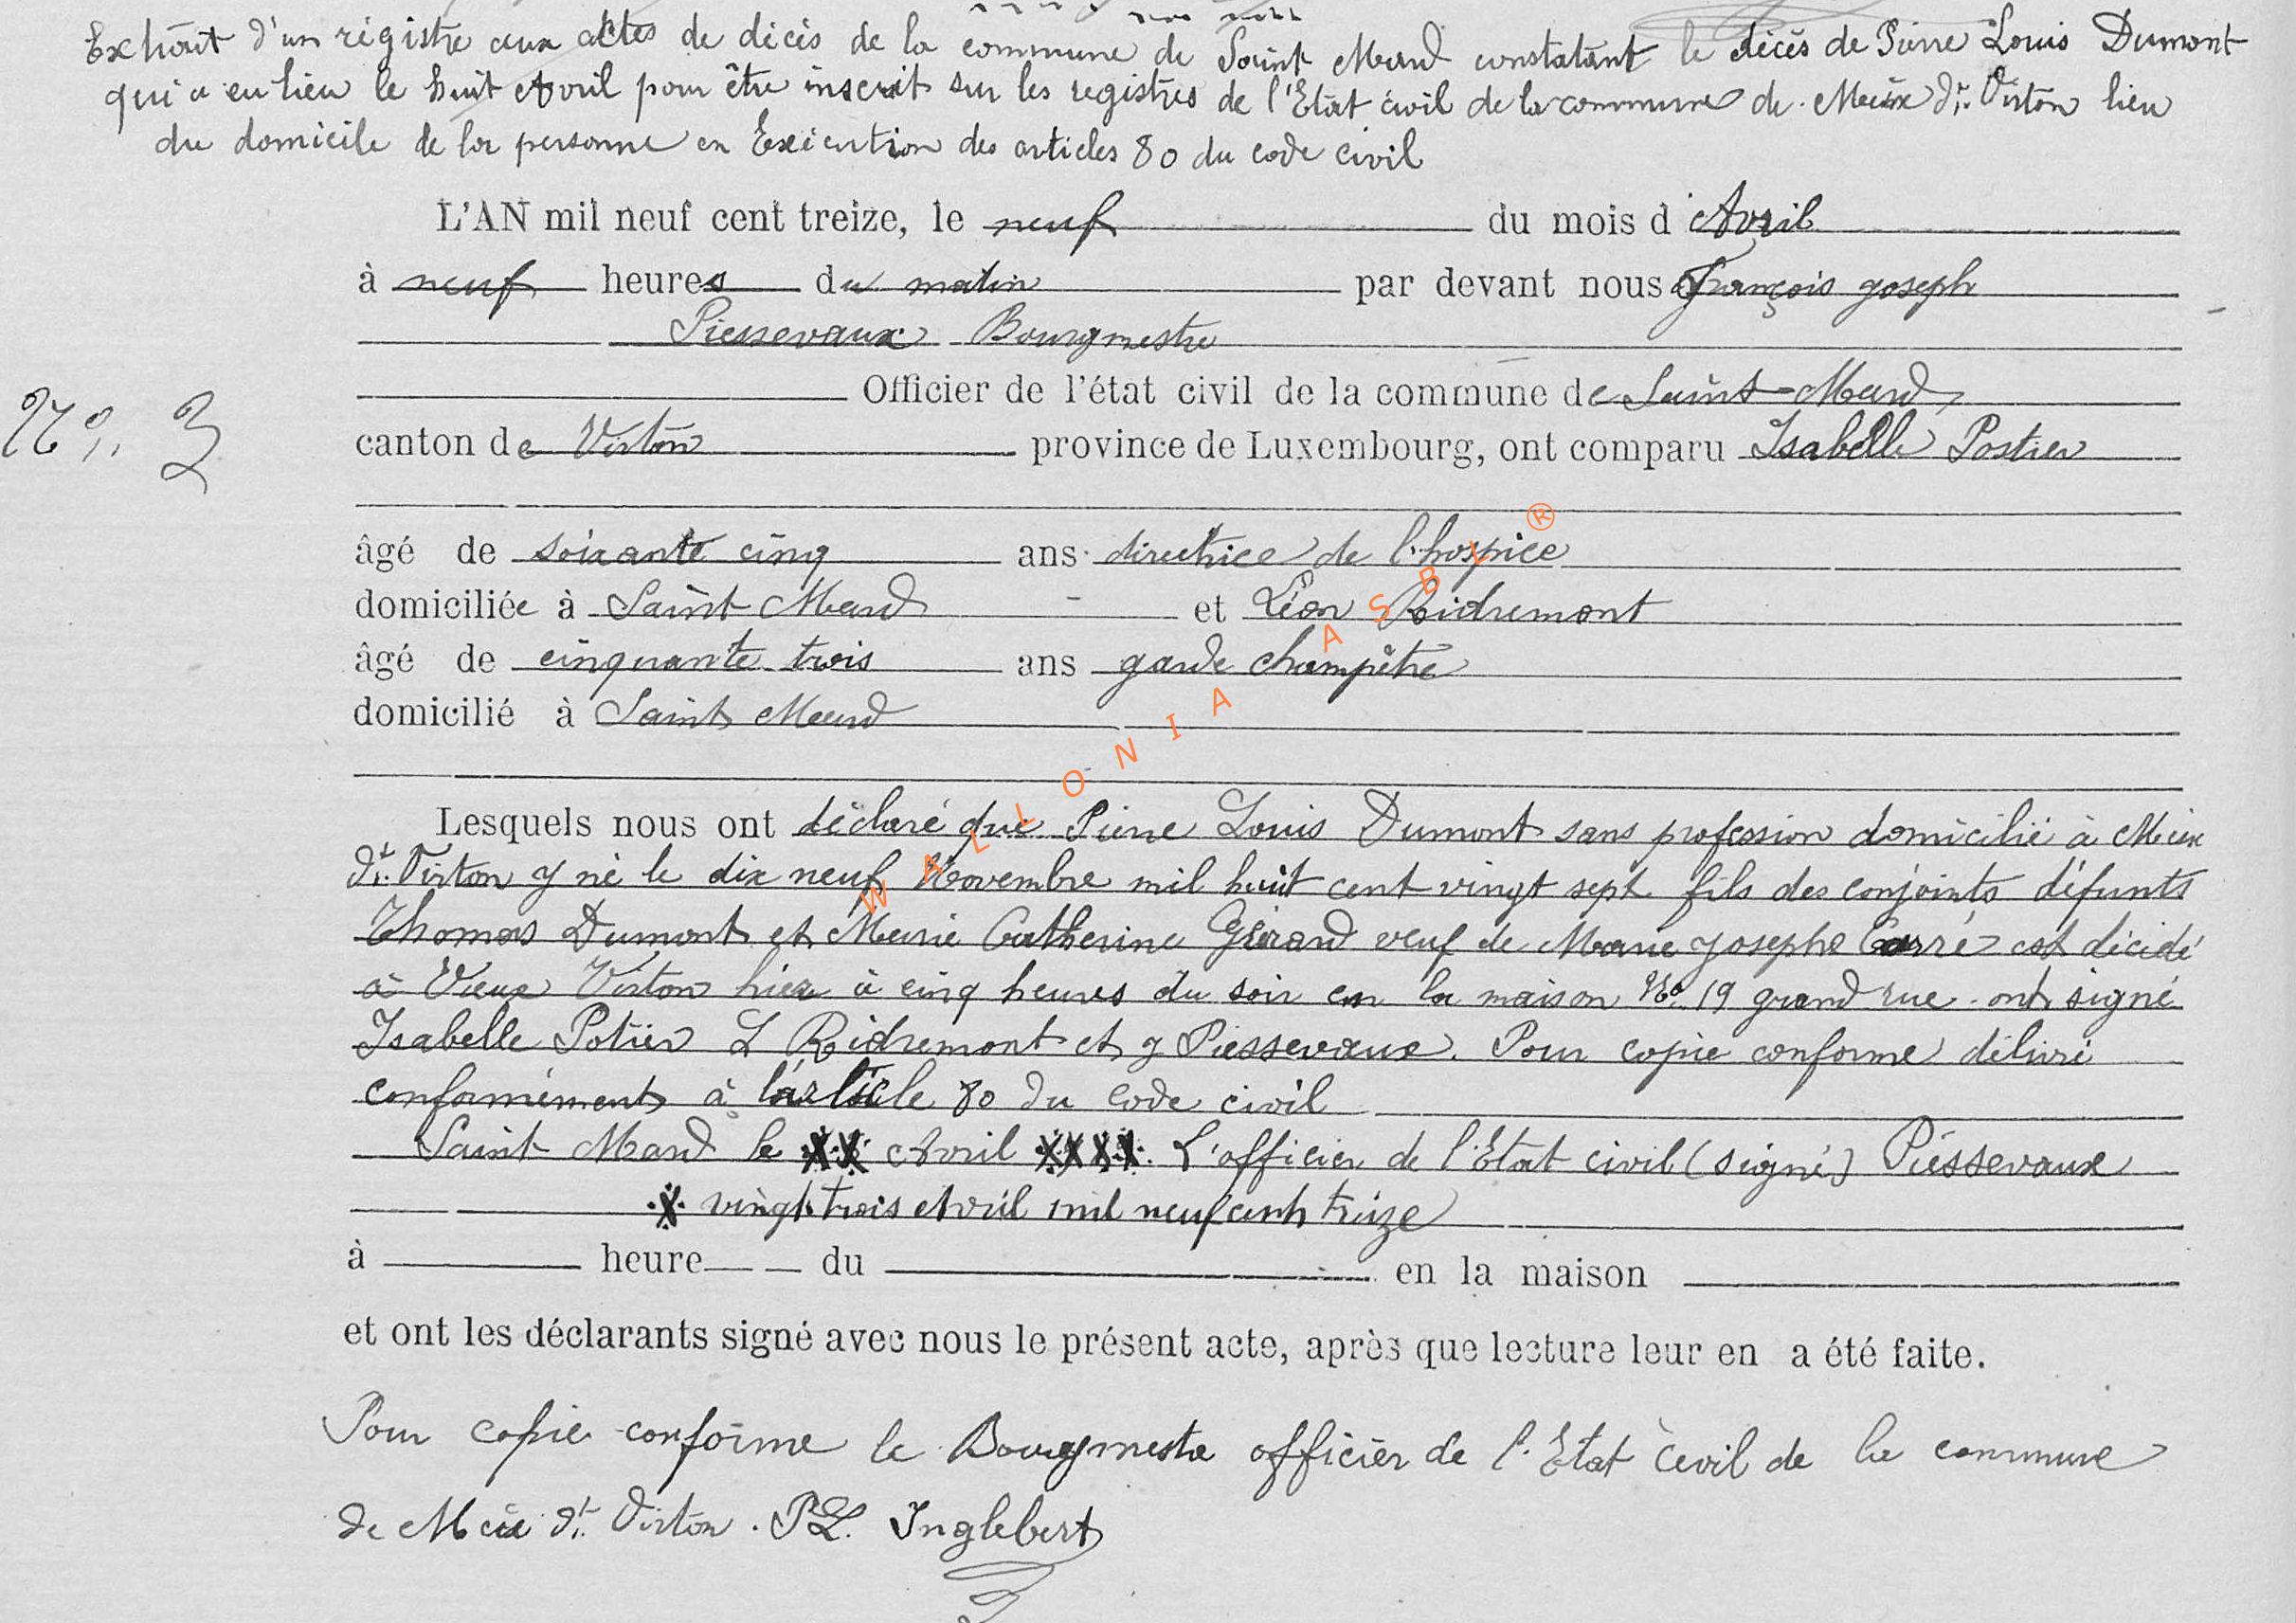 Extrait d'un régistre aux actes de décès de la commune de Saint Mard constatant le décès de Pierre Louis Dumont
qui a eu lieu le huit Avril pour être inscrit sur les registres de l'Etat civil de la commune de Meix dt Virton lieu
du domicile de la personne en Exécution des articles 80 du code civil
L'AN mil neuf cent treize, le neuf du mois d'Avril
à neuf heures du matin par devant nous François Joseph
Piessevaux Bourgmestre
Officier de l'état civil de la commune de Saint-Mard,
N° 3
canton de Virton province de Luxembourg, ont comparu Isabelle Postier
âgé de soixante cinq ans directrice de l'hospice
domiciliée à Saint Mard et Léon Ridremont
âgé de cinquante trois ans garde champêtre
domicilié à Saint Mard
Lesquels nous ont déclaré que Pierre Louis Dumont sans profession domicilié à Meix
dt Virton y né le dix neuf Novembre mil huit cent vingt sept fils des conjoints défunts
Thomas Dumont et Marie Catherine Gérard veuf de Marie Josephe Carré est décidé
à Vieux Virton hier à cinq heures du soir en la maison N° 19 grand rue ont signé
Isabelle Potier L Ridremont et J Piessevaux. Pour copie conforme délivré
conformément à l'article 80 du code civil
Saint Mard le XX Avril XXXX. L'officier de l'Etat civil (signé) Piéssevaux
X vingt trois Avril mil neuf cent treize
à heure du en la maison
et ont les déclarants signé avec nous le présent acte, après que lecture leur en a été faite.
Pour copie conforme le Bourgmestre officier de l'Etat civil de la commune
de Meix dt Virton. PL. Inglebert
WALLONIA ASBL ®